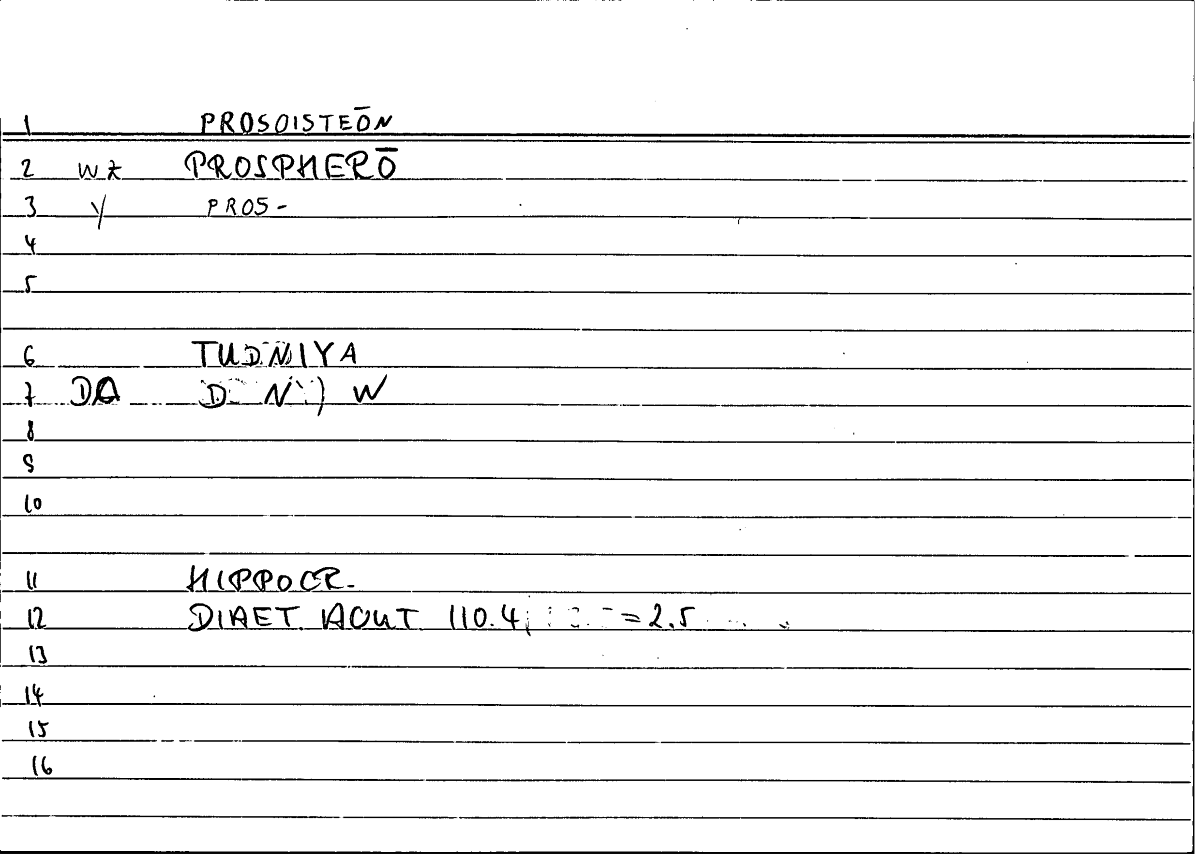 1 PROSOISTEŌN
2 WZ PROSPHERŌ
3 Y PROS-
4
5
6 TUDNIYA
7 DA D N W
8
9
10
11 HIPPOCR.
12 DIAET ACUT 110.4 = 2.5
13
14
15
16